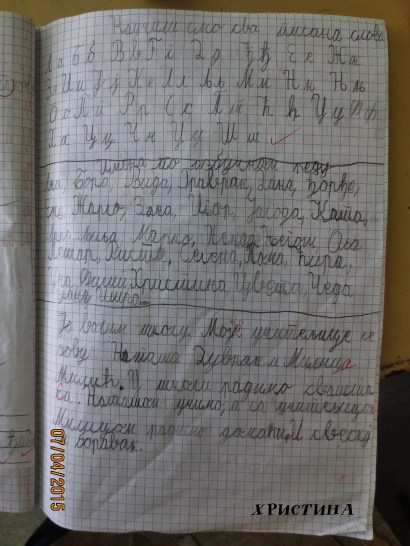 Научили смо сва писана слова
а Б б В в Г г Д д Ђ ђ Е е Ж ж
И и Ј ј К к Л л Љ љ М м Н н Њ њ
О о П п Р р С с Т т Ћ ћ У у Ф ф
Х х Ц ц Ч ч Џ џ Ш ш
Имена по азбучном реду
Бора, Вида, Гавран, Дана, Ђорђе,
Жарко, Зана, Игор, Јагода, Каћа,
Љиља, Марко, Ненад, Његош, Оља
Петар, Растко, Селена, Тома, Ћира,
Христина, Цвета, Чеда
Ја волим школу. Моје учитељице се
зову Наташа Дубрак и Милица
Милић. У школи радимо
са Наташом учимо, а са учитељицом
Милицом радимо домаћи. И
боравак.
07/04/2015
ХРИСТИНА